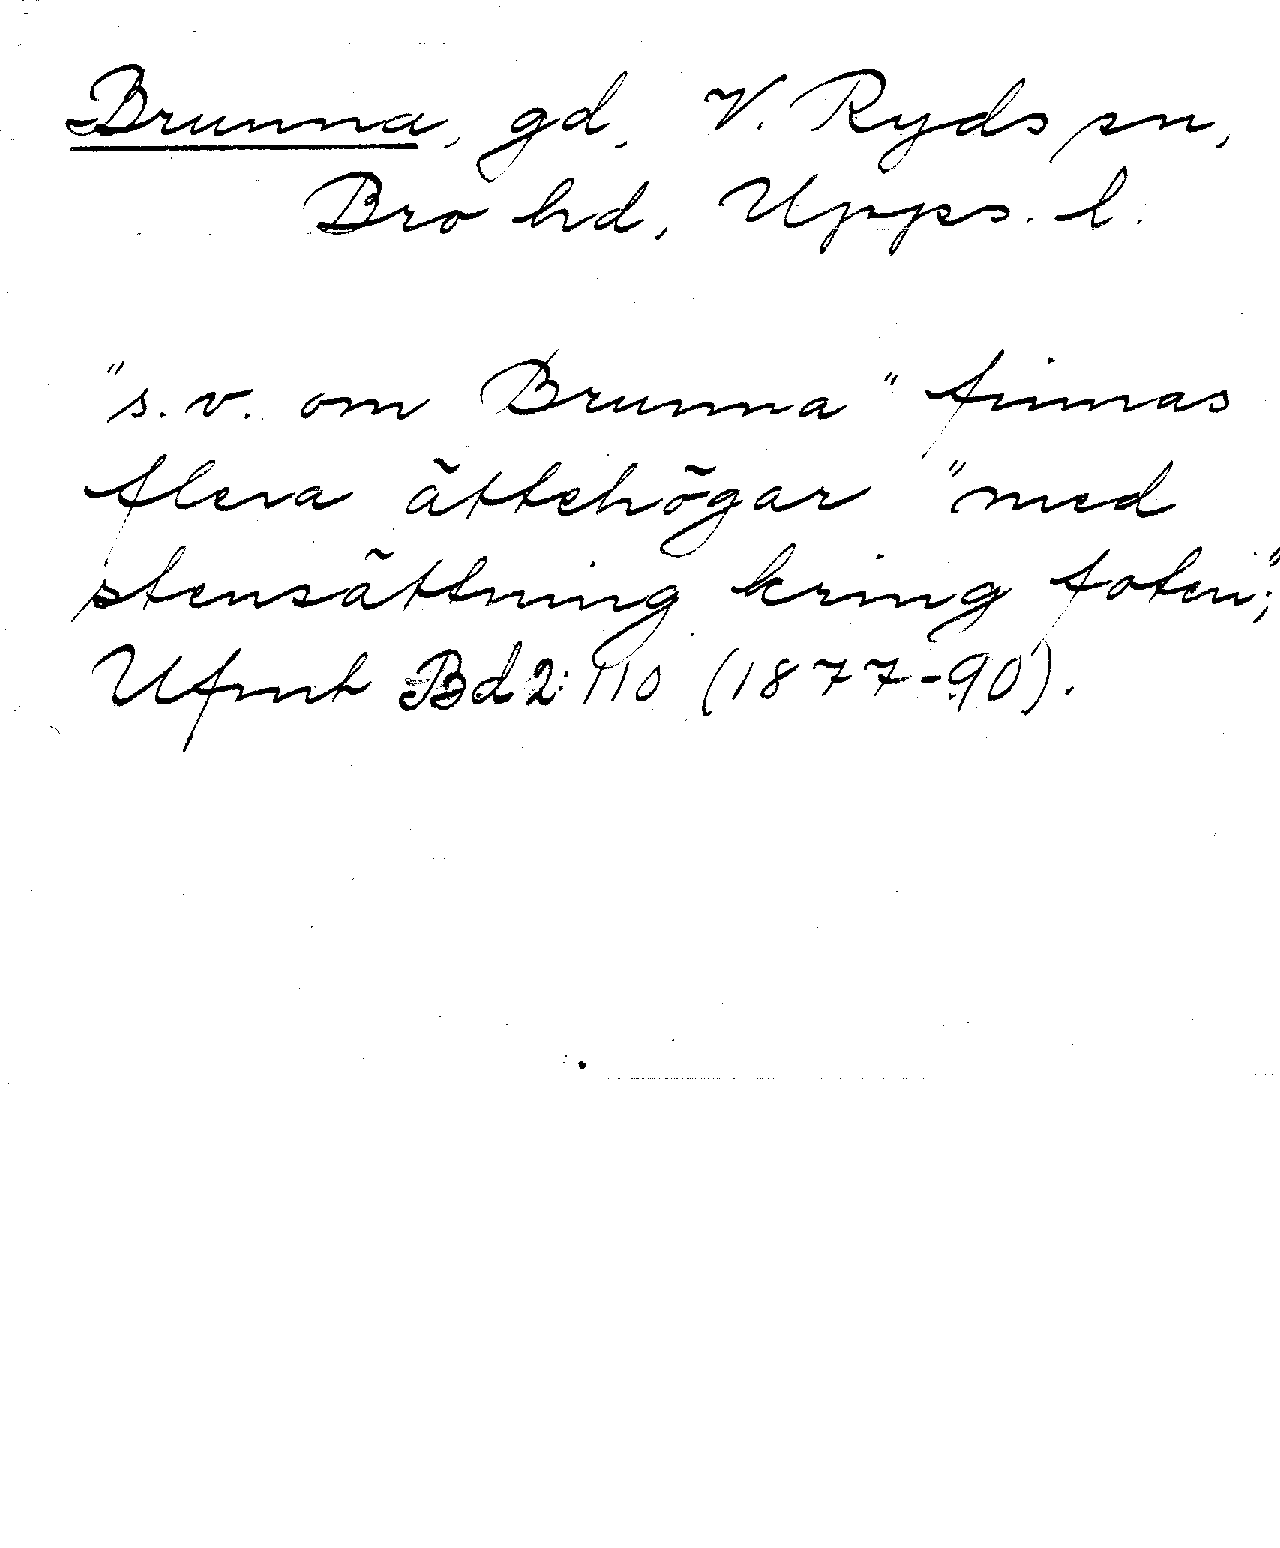 Brunna, gd, V. Ryds sn,
Bro hd, Upps. l.
"s.v. om Brunna" finnas
flera ättehögar "med
stensättning kring foten";
Ufmt Bd 2: 110 (1877-90).